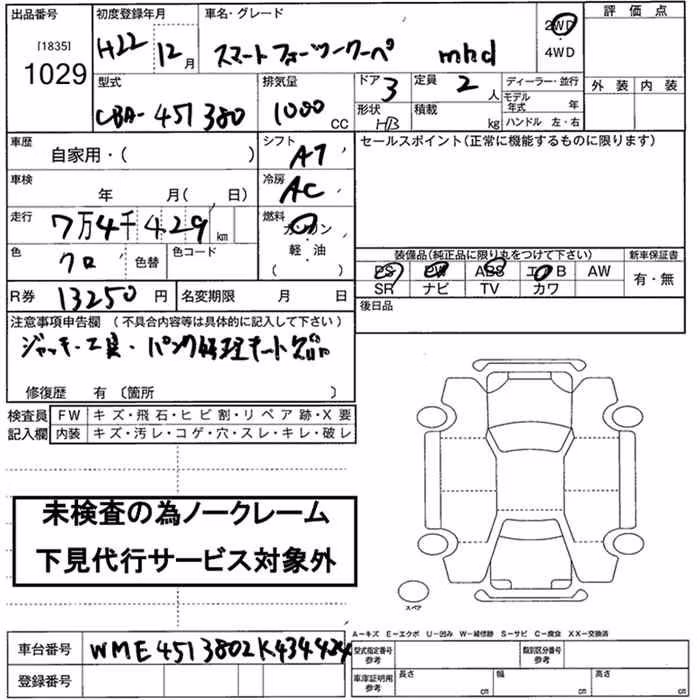 出品番号 初度登録年月 車名・グレード 評価点
[1835]
1029
H22 12月 スマートフォーツークーペ mhd
2WD
4WD
型式 CBA-451380
排気量 1000 CC
ドア 3 定員 2 人 ディーラー・並行
外装 内装
形状 HB 積載 kg モデル年式 年
ハンドル 左・右
車歴 自家用・( )
シフト AT
セールスポイント(正常に機能するものに限ります)
車検 年 月( 、日)
冷房 AC
走行 7万4千429 km
燃料 ガソリン
軽・油
( )
色 クロ 色替 色コード
装備品(純正品に限り丸をつけて下さい) 新車保証書
PS PW ABS エアB AW 有・無
SR ナビ TV カワ
R券 13250 円 名変期限 月 日
後日品
注意事項申告欄 (不具合内容等は具体的に記入して下さい)
ジャッキ・工具・パンク修理キット欠品
修復歴 有 〔箇所 〕
検査員 FW キズ・飛石・ヒビ割・リペア跡・X要
記入欄 内装 キズ・汚レ・コゲ・穴・スレ・キレ・破レ
未検査の為ノークレーム
下見代行サービス対象外
スペア
A-キズ E-エクボ U-凹み W-補修跡 S-サビ C-腐食 XX-交換済
車台番号 WME4513802K434424
型式指定番号 参考 類別区分番号 参考
登録番号
車庫証明用 参考 長さ cm 幅 cm 高さ cm